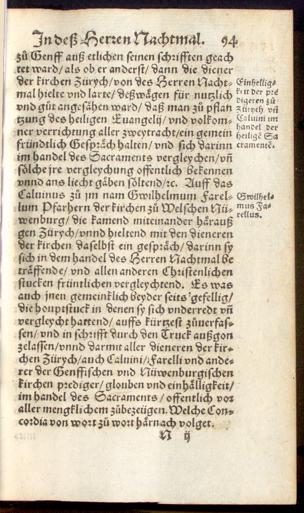 In deß Herren Nachtmal. 94
zů Genff auß etlichen seinen schrifften geach
tet ward / als ob er anderst / dann die diener
der kirchen Zürych / von des Herren Nacht-
mal hielte vnd larte / deßwägen für nutzlich
vnd gůt angesähen ward / daß man zů pflan
tzung des heiligen Euangelij / vnd volkom-
ner verrichtung aller zweytracht / ein gemein
fründtlich Gespräch halten / vnd sich darinn
im handel des Sacraments vergleychen / vñ
sölche jre vergleychung offentlich bekennen
vnnd ans liecht gäben söltend / ꝛc. Auff das
Caluinus zů jm nam Gwilhelmum Farel-
lum Pfarhern der kirchen zů Welschen Nü-
wenburg / die kamend miteinander härauß
gen Zürych / vnnd hieltend mit den dieneren
der kirchen daselbst ein gespräch / darinn sy
sich in dem handel des Herren Nachtmal be
träffende / vnd allen anderen Christenlichen
stucken früntlichen vergleychtend. Es was
auch jnen gemeinklich beyder seits gefellig /
die houptstuck in denen sy sich vnderredt vñ
vergleycht hattend / auffs kürtzest zůuerfas-
sen / vnd in schrifft durch den Truck außgon
zelassen / vnnd darmit aller dieneren der kir-
chen Zürych / auch Caluini / Farelli vnd ande-
rer der Genffischen vnd Nüwenburgischen
kirchen prediger / glouben vnd einhälligkeit /
im handel des Sacraments / offentlich vor
aller mengklichem zůbezeügen. Welche Con-
cordia von wort zů wort härnach volget.
N ij
Einhellig-
keit der pre
digeren zů
Zürych vñ
Caluini im
handel der
heilige Sa
cramente.
Gwilhel-
mus Fa-
rellus.